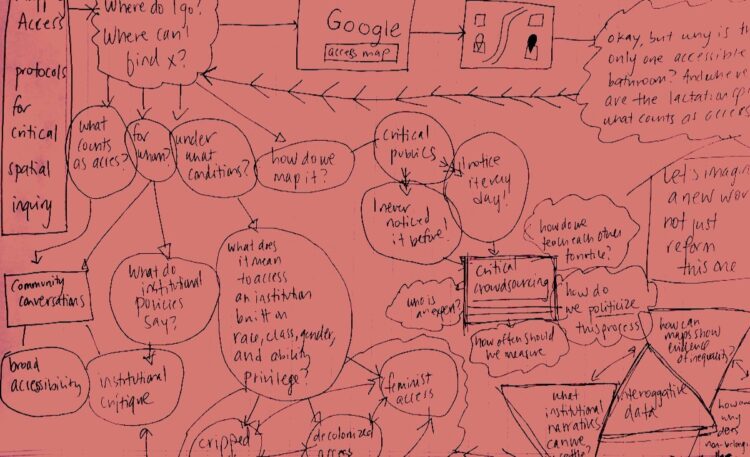 Access
protocols
for
critical
spatial
inquiry
Where do I go?
Where can't I
find x?
Google
access map
okay, but why is th
only one accessible
bathroom? And where
are the lactation
what counts as access
what
counts
as acces?
for
whom?
under
what
conditions?
how do we
map it?
critical
publics
I notice
it every
day!
I never
noticed
it before!
let's imagin
a new wor
not just
reform
this one
how do we
teach each other
to notice?
community
conversations
What do
institutional
policies
say?
What does
it mean
to access
an institution
built on
race, class, gender,
and ability
privilege?
critical
crowdsourcing
who is
an expert?
how do
we politicize
this process
how often should
we measure
how can
maps show
evidence
of inequality?
broad
accessibility
institutional
critique
feminist
access
what
institutional
narratives
can we
interroggative
data
why
cripped
decolonized
access